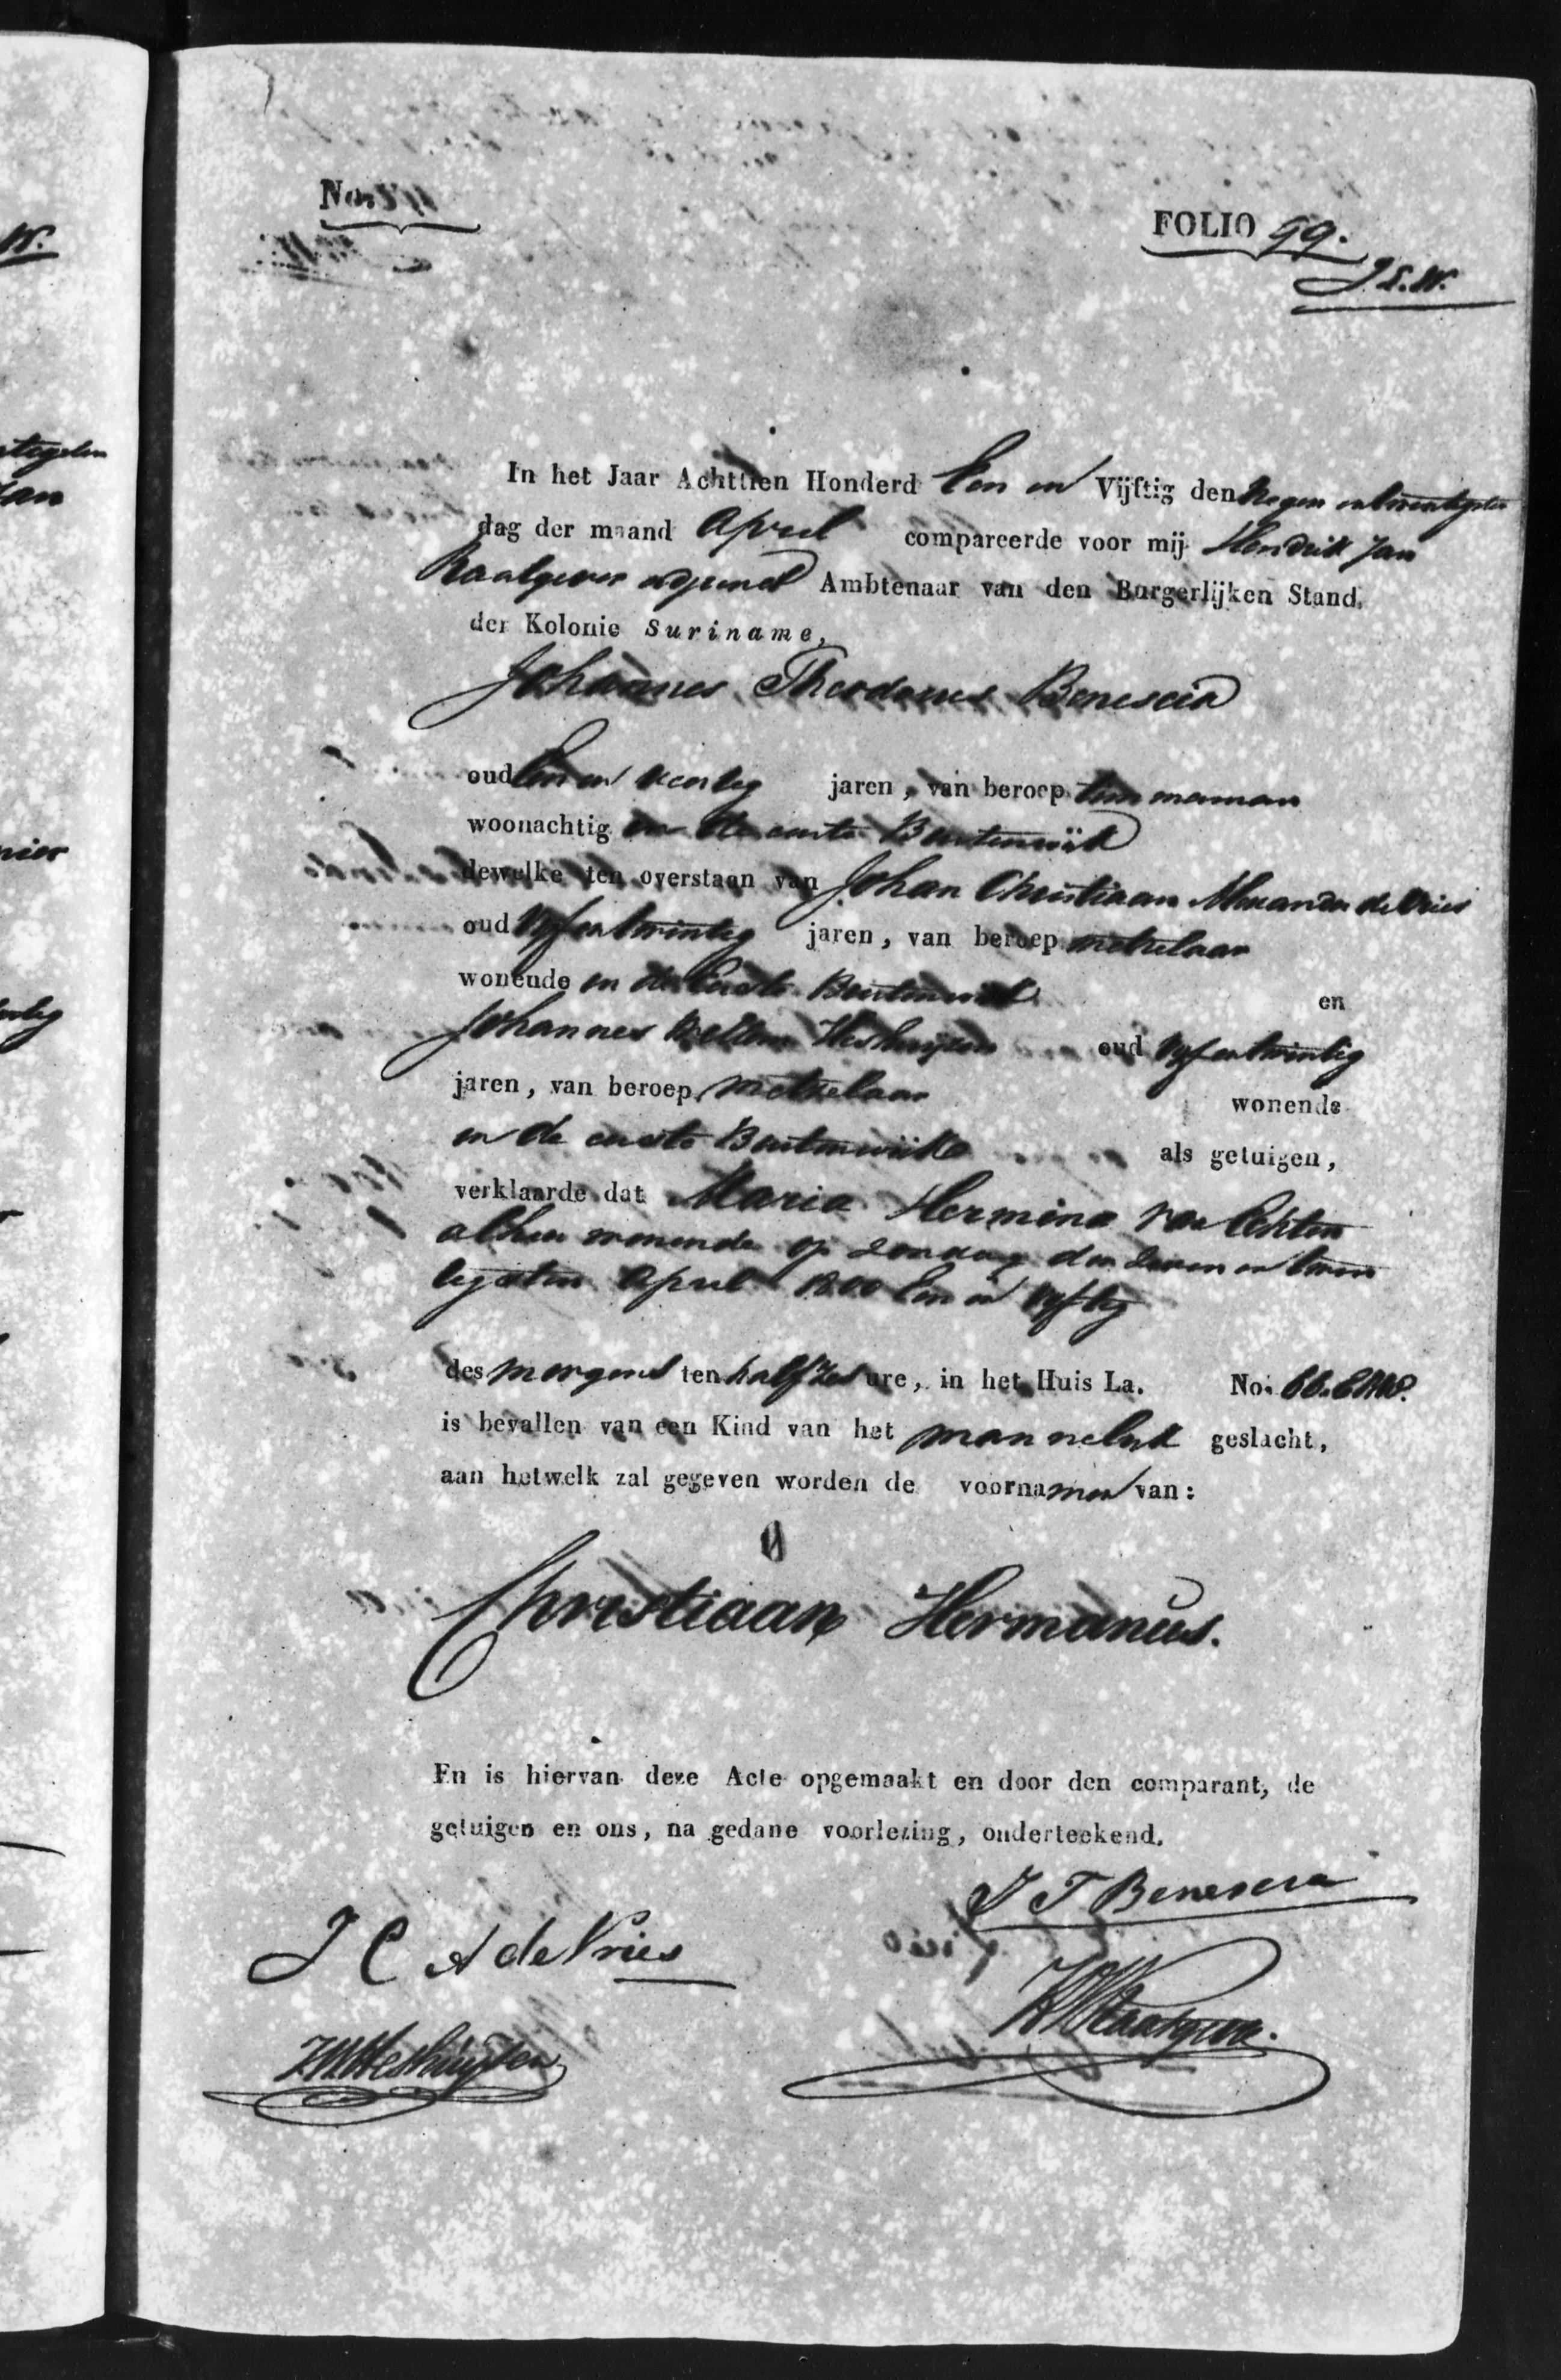 No.
FOLIO 99.
J.E.W.
In het Jaar Achttien Honderd Een en Vijftig den Negen entwintigsten
dag der maand April compareerde voor mij Hendrik Jan
Raatgever adjunct Ambtenaar van den Burgerlijken Stand
der Kolonie Suriname,
Johannes Theodorus
oud Een en veertig jaren, van beroep timmerman
woonachtig in de eerste Buitenwijk
dewelke ten overstaan van Johan Christiaan Alexander de Vries
oud vijfentwintig jaren, van beroep metselaar
wonende in de Eerste Buitenwijk en
Johannes Willem Heshuijsen oud vijfentwintig
jaren, van beroep metselaar wonende
in de eerste Buitenwijk als getuigen,
verklaarde dat Maria Hermina van
alhier wonende op zondag den zeven en twin
tigsten April 1800 Een en vijftig
des morgens ten half zes ure, in het Huis La. No. 66.
is bevallen van een Kind van het mannelijk geslacht,
aan hetwelk zal gegeven worden de voornamen van:
Christiaan Hermanus.
En is hiervan deze Acte opgemaakt en door den comparant, de
getuigen en ons, na gedane voorlezing, onderteekend.
J T
J C A de Vries
HJRaatgever.
JWHeshuijsen